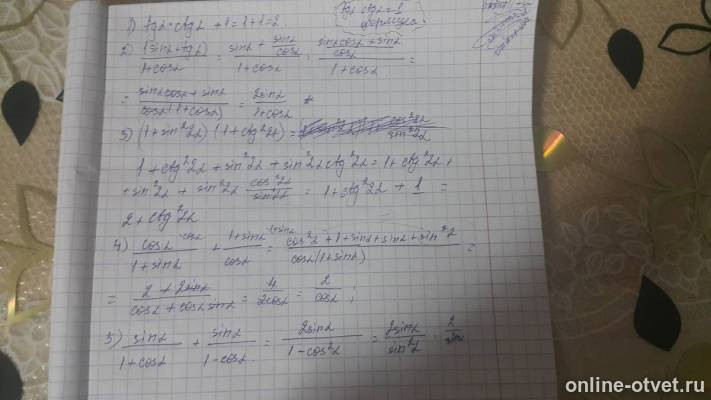 1) tgα · ctgα + 1 = 1 + 1 = 2.
tgα · ctgα = 1
формула
2) (sinα + tgα)/(1 + cosα) = (sinα + sinα/cosα)/(1 + cosα) = ((sinα cosα + sinα)/cosα)/(1 + cosα) =
= (sinα cosα + sinα)/(cosα(1 + cosα)) = 2sinα/(1 + cosα)
3) (1 + sin²2α)(1 + ctg²2α) =
1 + ctg²2α + sin²2α + sin²2α ctg²2α = 1 + ctg²2α +
+ sin²2α + sin²2α cos²2α/sin²2α = 1 + ctg²2α + 1 =
2 + ctg²2α
4) cosα/(1 + sinα) + (1 + sinα)/cosα = (cos²α + 1 + sinα + sinα + sin²α)/(cosα(1 + sinα)) =
= (2 + 2sinα)/(cosα + cosα sinα) = 4/2cosα = 2/cosα ;
5) sinα/(1 + cosα) + sinα/(1 − cosα) = 2sinα/(1 − cos²α) = 2sinα/sin²α = 2/sinα
online-otvet.ru